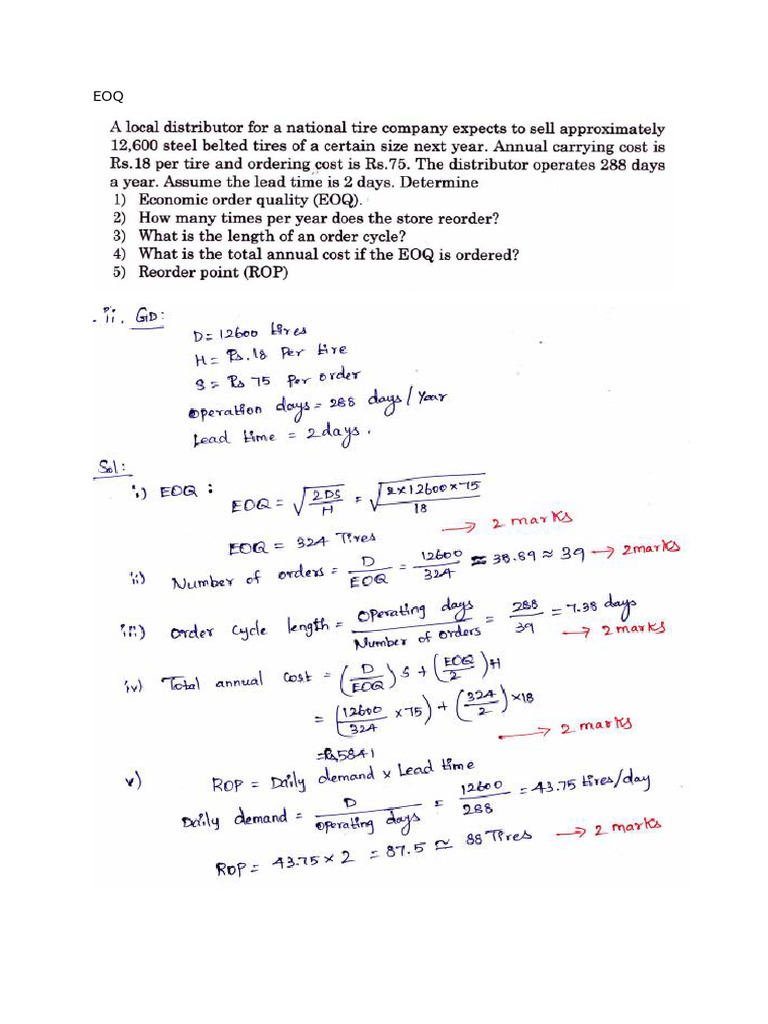 EOQ
A local distributor for a national tire company expects to sell approximately
12,600 steel belted tires of a certain size next year. Annual carrying cost is
Rs.18 per tire and ordering cost is Rs.75. The distributor operates 288 days
a year. Assume the lead time is 2 days. Determine
1) Economic order quality (EOQ).
2) How many times per year does the store reorder?
3) What is the length of an order cycle?
4) What is the total annual cost if the EOQ is ordered?
5) Reorder point (ROP)
ii. GD:
D = 12600 tires
H = Rs.18 Per tire
S = Rs 75 Per order
Operation days = 288 days/Year
Lead time = 2 days.
Sol:
i) EOQ :
EOQ = √(2DS/H) = √(2×12600×75/18)
EOQ = 324 Tires → 2 marks
ii) Number of orders = D/EOQ = 12600/324 ≈ 38.89 ≈ 39 → 2 marks
iii) Order cycle length = Operating days/Number of orders = 288/39 = 7.38 days
→ 2 marks
iv) Total annual cost = (D/EOQ) S + (EOQ/2) H
= (12600/324 × 75) + (324/2) × 18
= Rs 5841 → 2 marks
v) ROP = Daily demand × Lead time
Daily demand = D/Operating days = 12600/288 = 43.75 tires/day
ROP = 43.75 × 2 = 87.5 ≃ 88 Tires → 2 marks